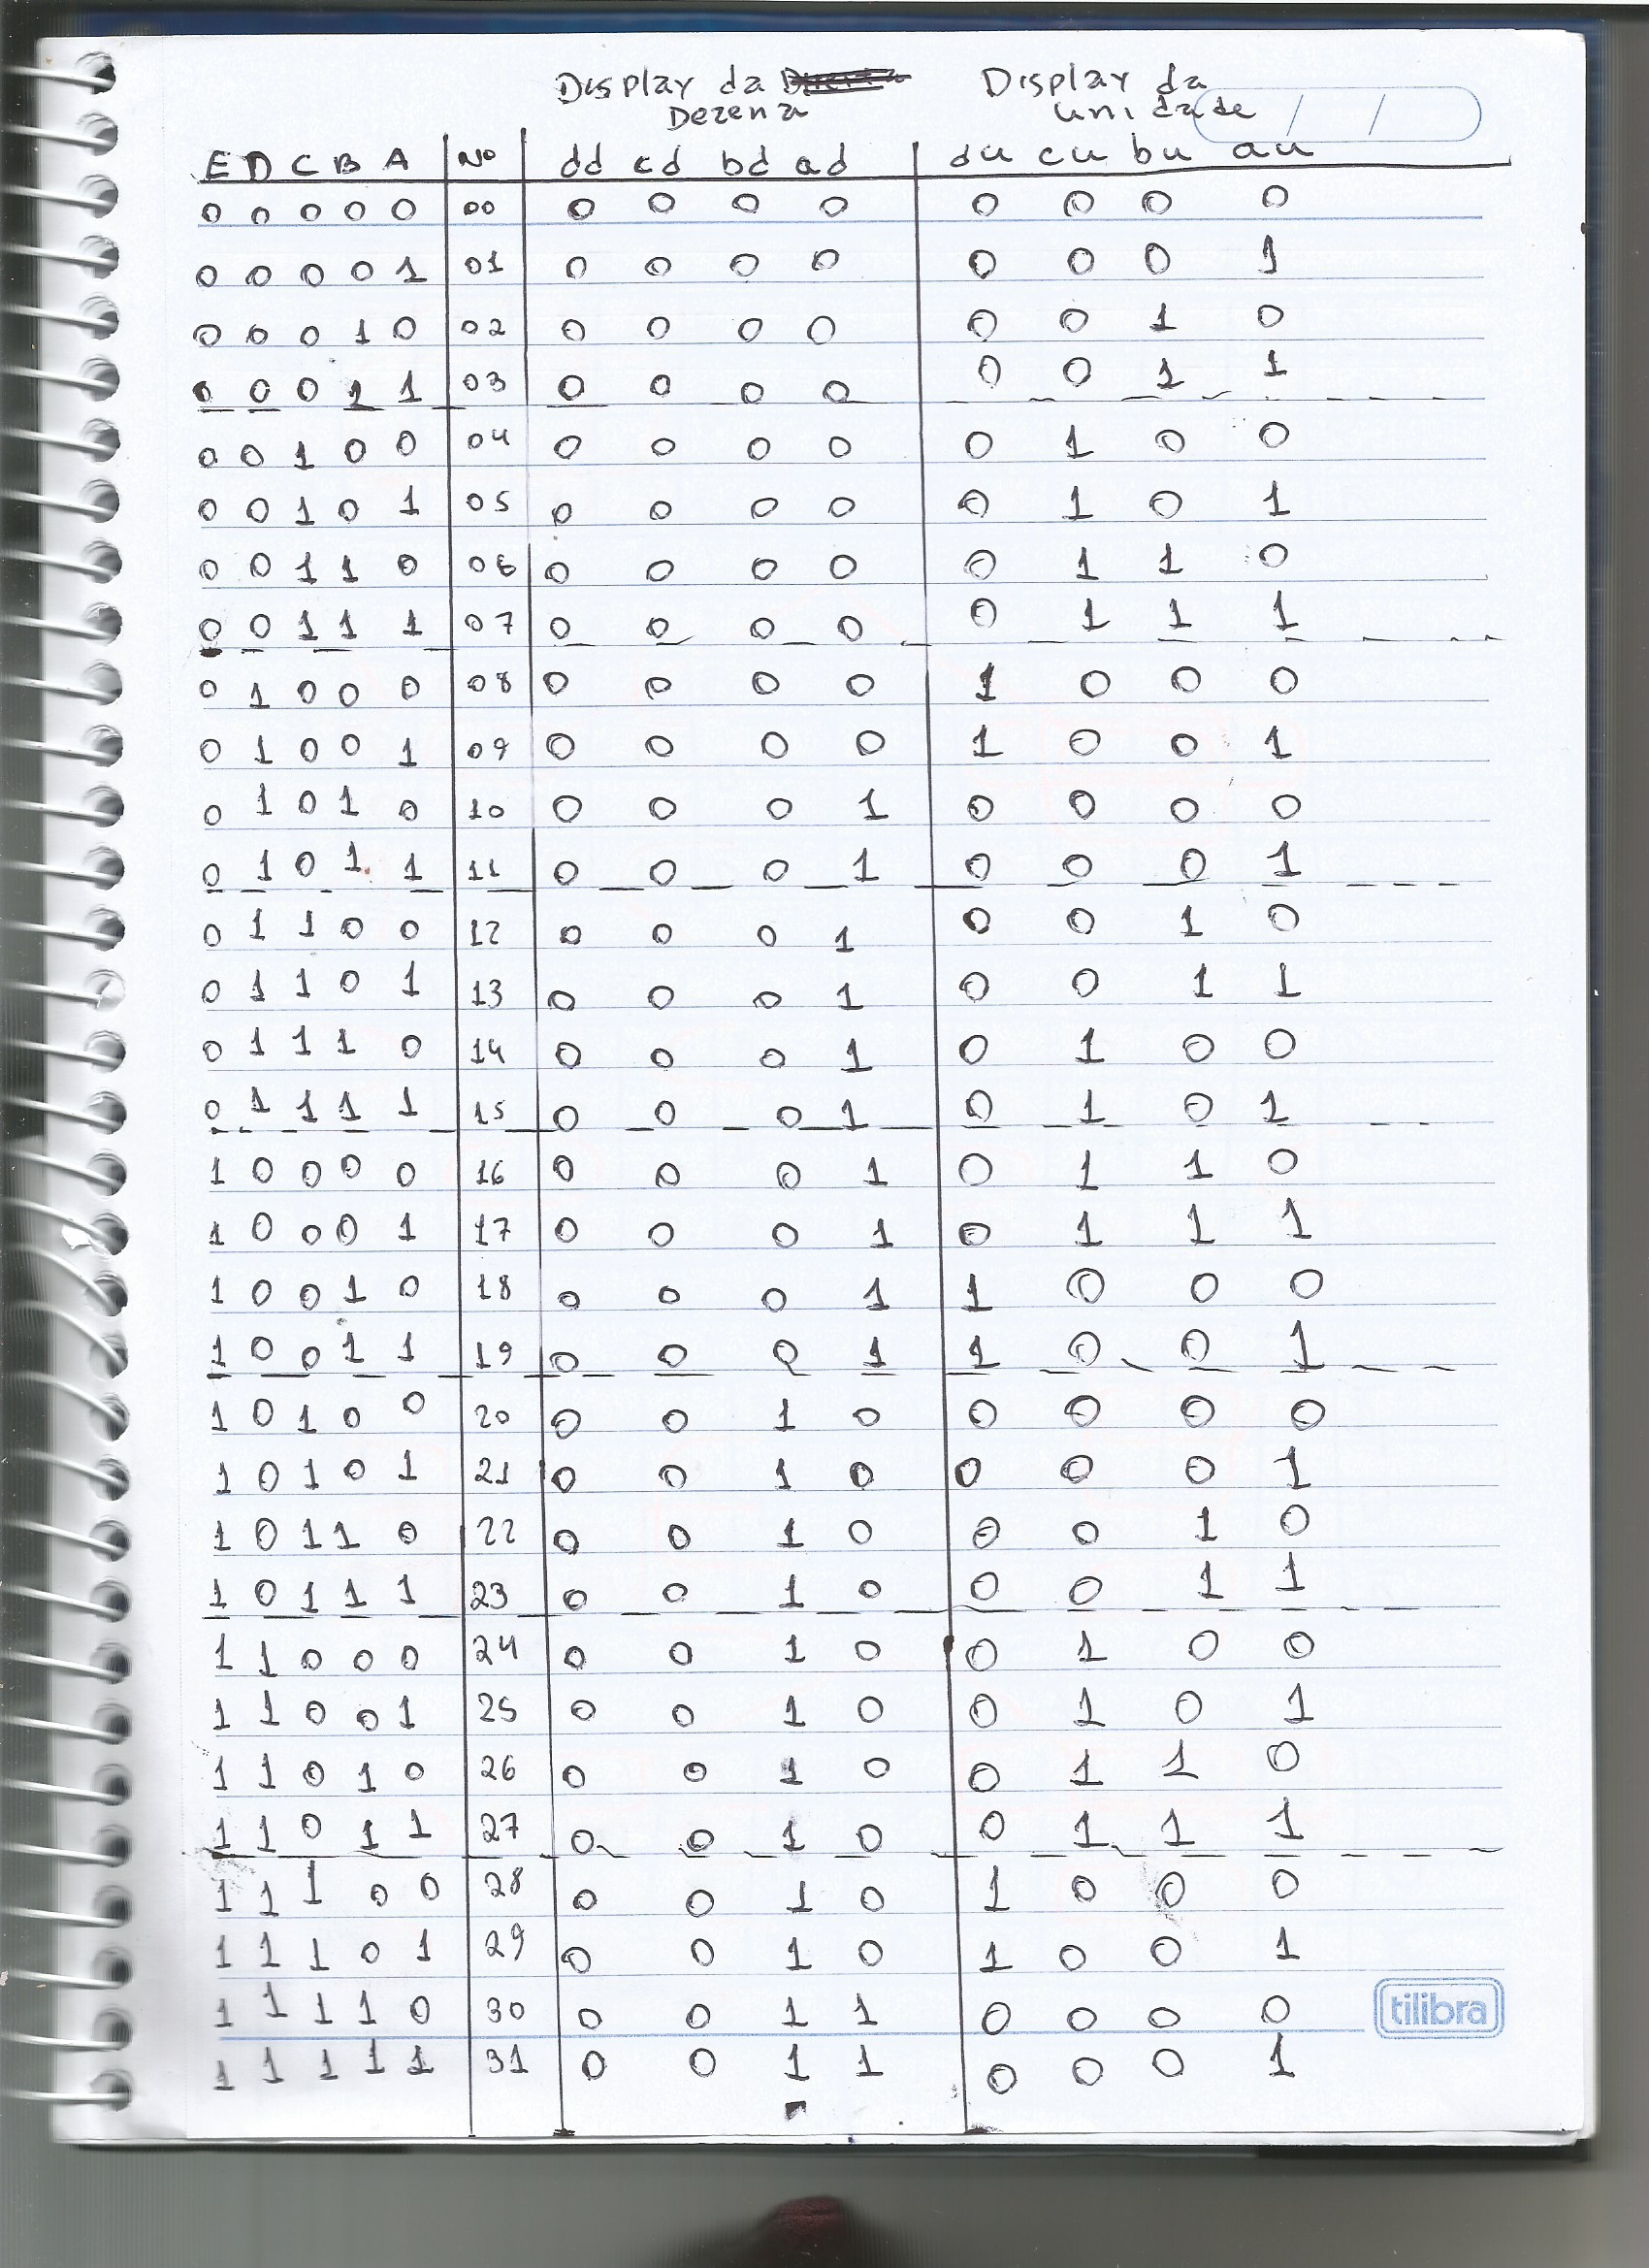 Display da Display da
Dezena unidade / /
E D C B A Nº dd cd bd ad du cu bu au
0 0 0 0 0 00 0 0 0 0 0 0 0 0
0 0 0 0 1 01 0 0 0 0 0 0 0 1
0 0 0 1 0 02 0 0 0 0 0 0 1 0
0 0 0 1 1 03 0 0 0 0 0 0 1 1
0 0 1 0 0 04 0 0 0 0 0 1 0 0
0 0 1 0 1 05 0 0 0 0 0 1 0 1
0 0 1 1 0 06 0 0 0 0 0 1 1 0
0 0 1 1 1 07 0 0 0 0 0 1 1 1
0 1 0 0 0 08 0 0 0 0 1 0 0 0
0 1 0 0 1 09 0 0 0 0 1 0 0 1
0 1 0 1 0 10 0 0 0 1 0 0 0 0
0 1 0 1 1 11 0 0 0 1 0 0 0 1
0 1 1 0 0 12 0 0 0 1 0 0 1 0
0 1 1 0 1 13 0 0 0 1 0 0 1 1
0 1 1 1 0 14 0 0 0 1 0 1 0 0
0 1 1 1 1 15 0 0 0 1 0 1 0 1
1 0 0 0 0 16 0 0 0 1 0 1 1 0
1 0 0 0 1 17 0 0 0 1 0 1 1 1
1 0 0 1 0 18 0 0 0 1 1 0 0 0
1 0 0 1 1 19 0 0 0 1 1 0 0 1
1 0 1 0 0 20 0 0 1 0 0 0 0 0
1 0 1 0 1 21 0 0 1 0 0 0 0 1
1 0 1 1 0 22 0 0 1 0 0 0 1 0
1 0 1 1 1 23 0 0 1 0 0 0 1 1
1 1 0 0 0 24 0 0 1 0 0 1 0 0
1 1 0 0 1 25 0 0 1 0 0 1 0 1
1 1 0 1 0 26 0 0 1 0 0 1 1 0
1 1 0 1 1 27 0 0 1 0 0 1 1 1
1 1 1 0 0 28 0 0 1 0 1 0 0 0
1 1 1 0 1 29 0 0 1 0 1 0 0 1
1 1 1 1 0 30 0 0 1 1 0 0 0 0
tilibra
1 1 1 1 1 31 0 0 1 1 0 0 0 1